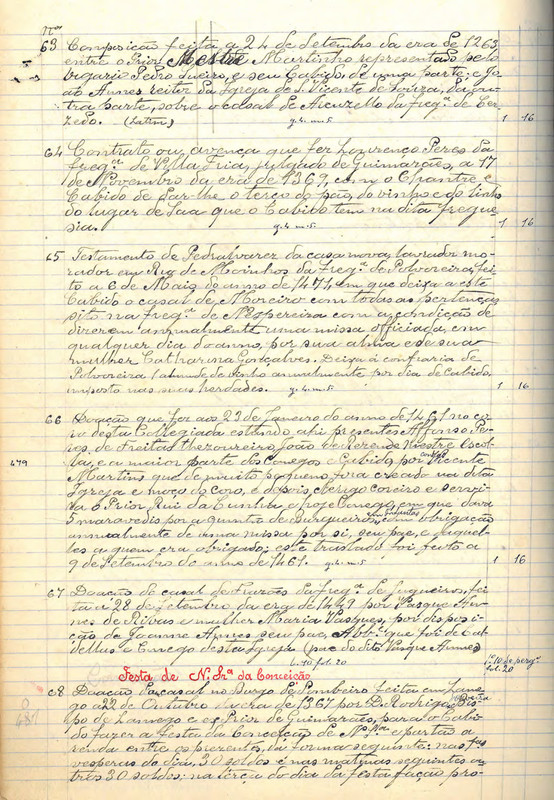 Nos
63 Composição feita a 24 de Setembro da era de 1263
entre o Prior Mestre Martinho representado pelo
vigario Pedro e seu Cabido de uma parte; e Jo
ão Annes reitor da Igreja de S. Vicente de Souza, da ou
tra parte, sobre o casal de da freg.ª de Cer
zedo. (Latim) g. 4. m. 5 1 16
64 Contrato ou avença que fez Lourenço Peres da
freg.ª de Villa Fria, julgado de Guimarães, a 17
de Novembro da era de 1369, com o Chantre e
Cabido de dar-lhe o terço do pão, do vinho e do linho
do lugar de que o Cabido tem na dita fregue
sia. g. 4. m. 5 1 16
65 Testamento de Pedralvarez da casa nova, lavrador mo
rador em Rua de Moinhos da freg.ª de Polvoreira, fei
to a 6 de Maio do anno de 1471 em que deixa a este
Cabido o casal de Moreiro com todas as pertenças
sito na freg.ª de Nespereira com a condição de
dizerem annualmente uma missa officiada, em
qualquer dia do anno, por sua alma e de sua
mulher Catharina Gonçalves. Deixa á confraria de
Polvoreira 1 almude de vinho annualmente por dia de Cabido,
imposto nas suas herdades. g. 4. m. 5 1 16
66 Doação que fez aos 29 de Janeiro do anno de 1461 no co
ro desta Collegiada estando ahi presentes Affonso Pe
res de Freitas Thezoureiro, João de Rezende Mestre Esco
479 la, e a maior parte dos Conegos e Cabido, por Vicente
Martins que de muito pequeno fora creado na dita
Igreja e moço do coro, e depois clerigo coreiro e servi
a o Prior Rui da Cunha e hoje Conego, em que dava
5 maravedis por a quinta de com obrigação
annualmente de uma missa por si, seu pae, e aquel
les a quem era obrigado; este traslado foi feito a
9 de Setembro do anno de 1461. g. 4. m. 5 1 16
67 Doação do casal de da freg.ª de Jugueiros, fei
ta a 28 de Setembro da era de 1447 por Vasque An
nes de Ribas e mulher Maria Vasques, por dispozi
ção de Joanne Annes seu pae, Abb.e que foi de Cal
dellas e Conego desta Igreja (pae do dito Vasque Annes)
L. 10 fol. 20 L.º 10 de perg. fol. 20
Festa de N. Snr.ª da Conceição
68 Doação do casal no Burgo de Pombeiro feita em Lame
go a 22 de Outubro da era de 1367 por D. Rodrigo Bis
po de Lamego e ex Prior de Guimarães, para o Cabi
do fazer a festa da Conceição de N. Snr.ª e partão a
renda entre os prezentes, da forma seguinte: nas 1.as
vesperas do dia, 30 soldos e nas matinas seguintes ou
tros 30 soldos; na terça do dia da festa fação pro-